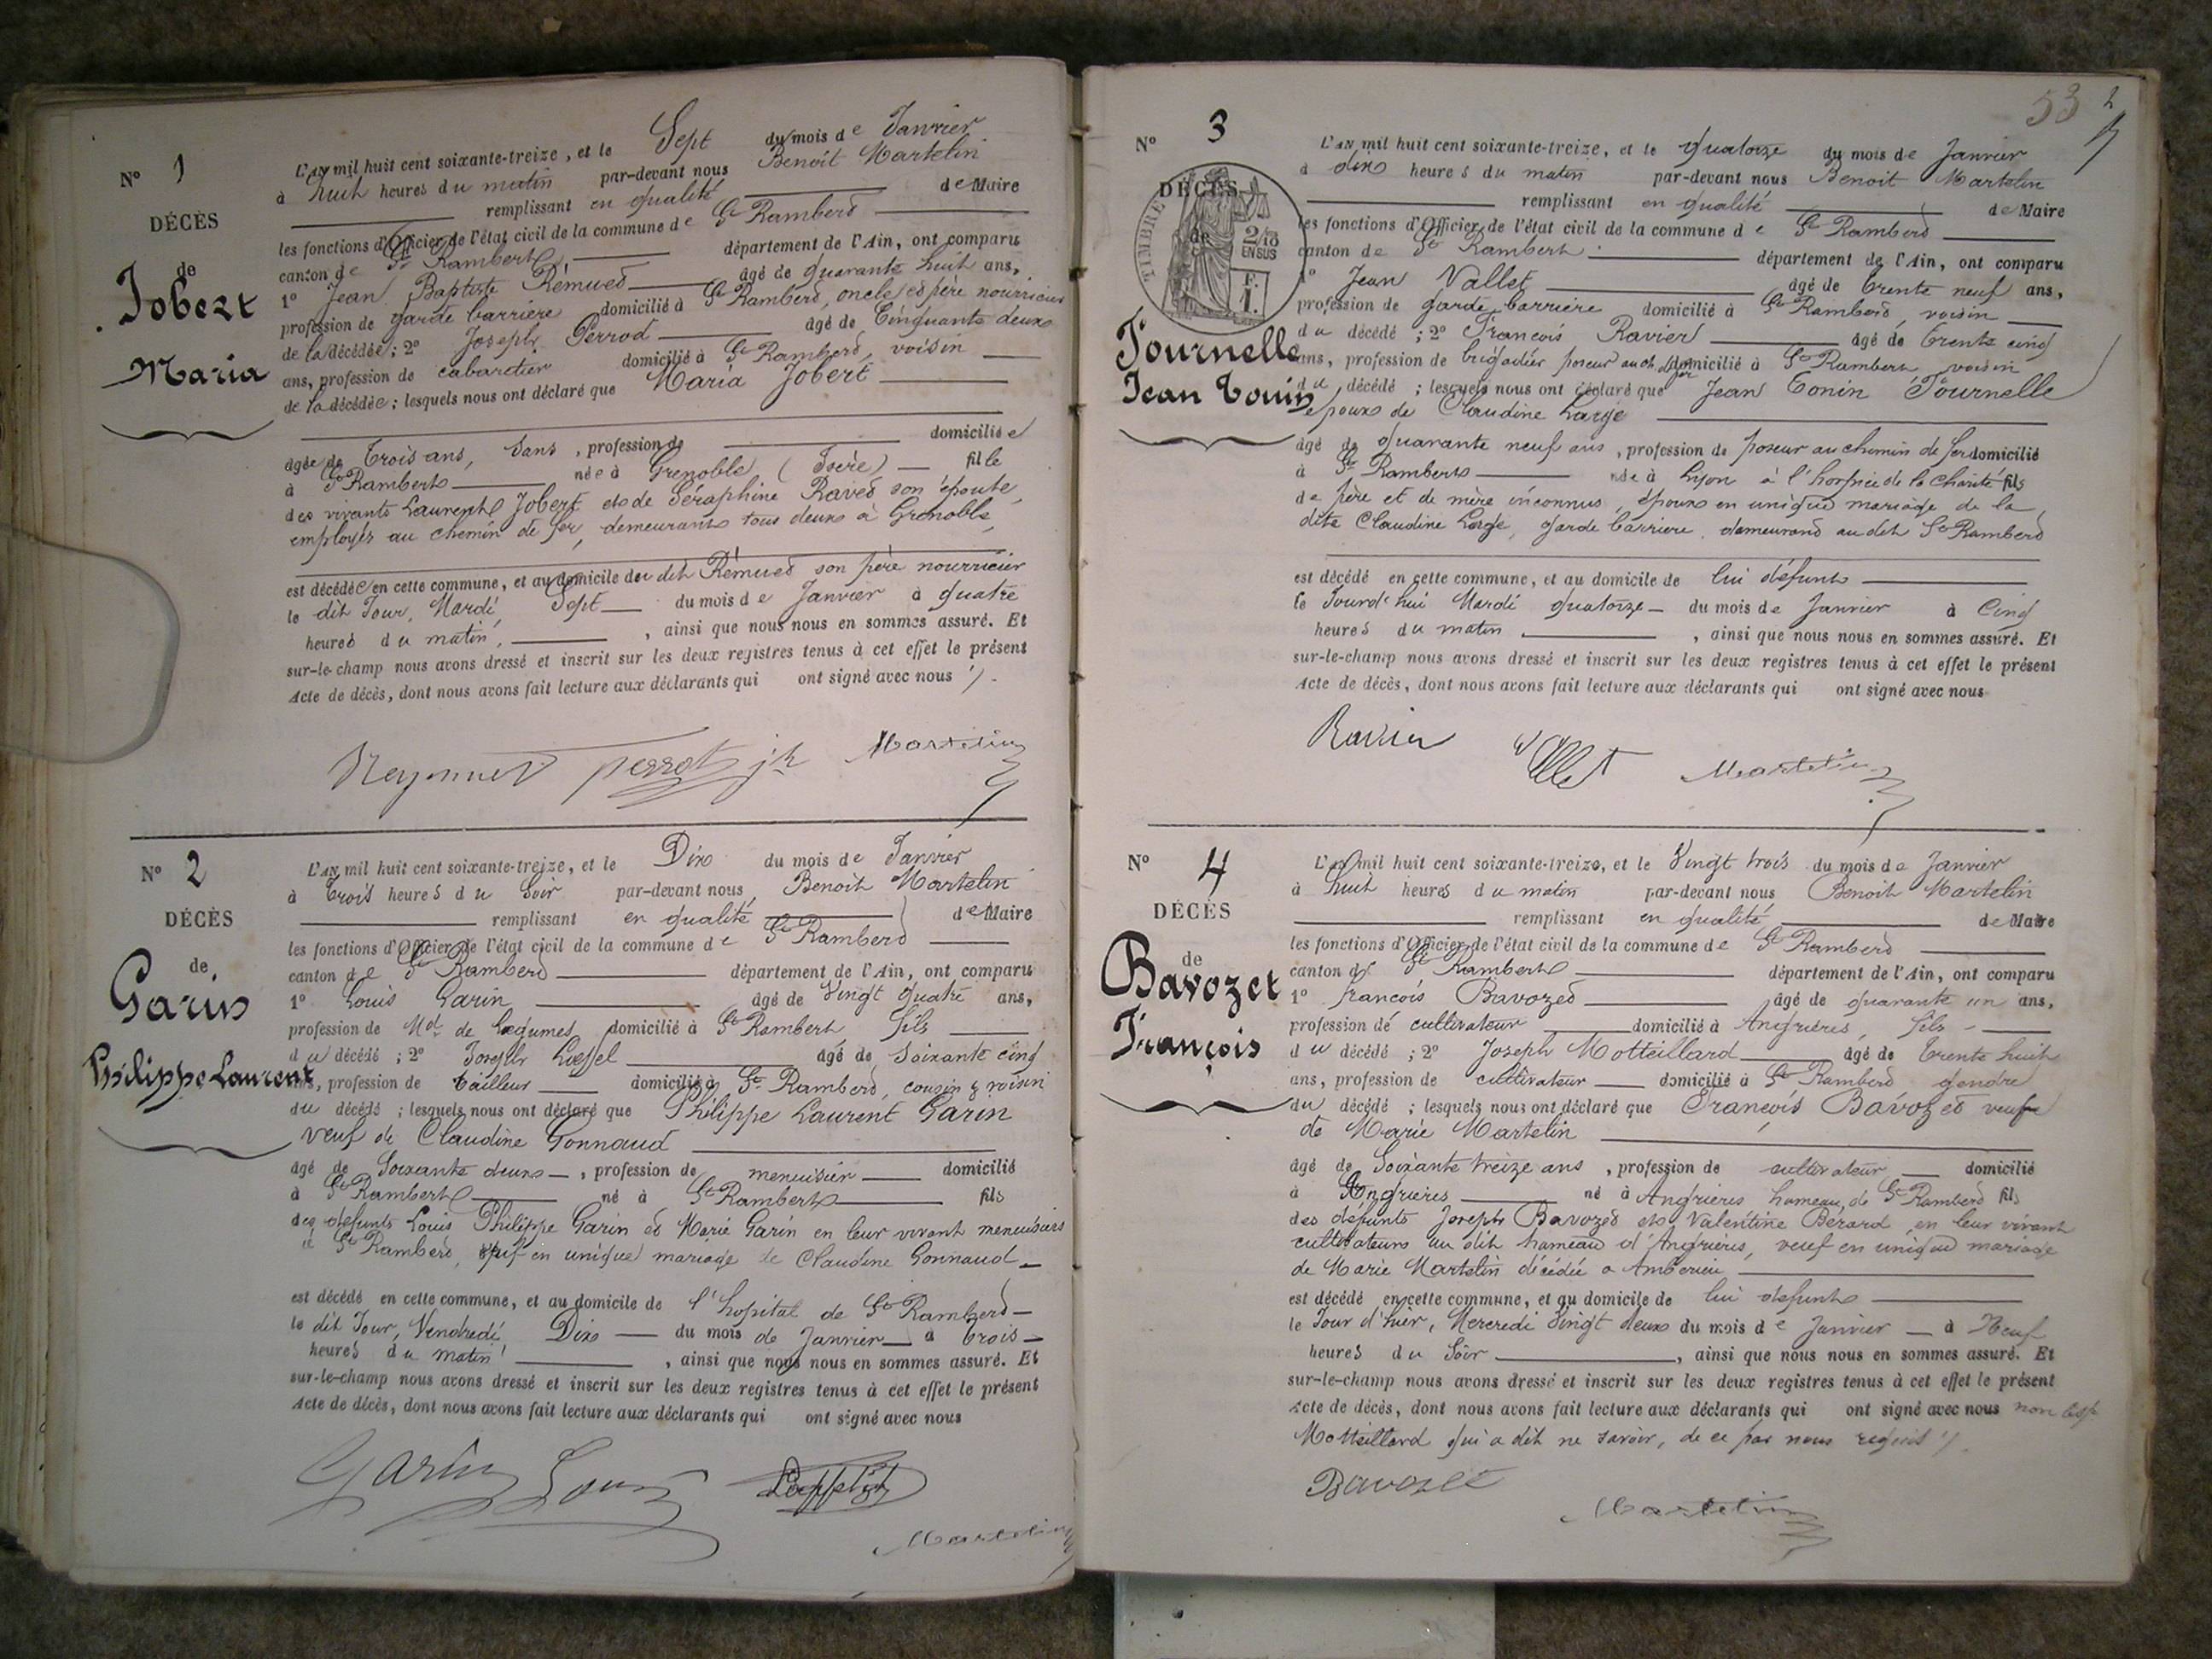 N° 1
DÉCÈS
de
Jobert
Maria
L'AN mil huit cent soixante-treize, et le Sept du mois de Janvier
à huit heures du matin par-devant nous Benoit Martelin
remplissant en qualité de Maire
les fonctions d'Officier de l'état civil de la commune de St Rambert
canton de St Rambert département de l'Ain, ont comparu
1° Jean Baptiste Rémuet âgé de quarante huit ans,
profession de garde barrière domicilié à St Rambert, oncle et père nourricier
de la décédée; 2° Joseph Perrod âgé de Cinquante deux
ans, profession de cabaretier domicilié à St Rambert, voisin
de la décédée; lesquels nous ont déclaré que Maria Jobert
âgée de trois ans, sans, profession de domiciliée
à St Rambert née à Grenoble (Isère) fille
des vivants Laurent Jobert et de Séraphine Ravet son épouse,
employés au chemin de fer, demeurant tous deux à Grenoble
est décédée en cette commune, et au domicile du dit Rémuet son père nourricier
le dit Jour, Mardi, Sept du mois de Janvier à quatre
heures du matin, , ainsi que nous nous en sommes assuré. Et
sur-le-champ nous avons dressé et inscrit sur les deux registres tenus à cet effet le présent
Acte de décès, dont nous avons fait lecture aux déclarants qui ont signé avec nous
perrot jh Martelin
N° 2
DÉCÈS
de
Garin
Philippe Laurent
L'AN mil huit cent soixante-treize, et le Dix du mois de Janvier
à trois heures du soir par-devant nous Benoit Martelin
remplissant en qualité de Maire
les fonctions d'Officier de l'état civil de la commune de St Rambert
canton de St Rambert département de l'Ain, ont comparu
1° Louis Garin âgé de Vingt quatre ans,
profession de Md de Légumes domicilié à St Rambert, fils
du décédé; 2° Joseph Loeffel âgé de soixante cinq
ans, profession de tailleur domicilié à St Rambert, cousin & voisin
du décédé; lesquels nous ont déclaré que Philippe Laurent Garin
veuf de Claudine Gonnaud
âgé de Soixante deux, profession de menuisier domicilié
à St Rambert né à St Rambert fils
des defunts Louis Philippe Garin et Marie Garin en leur vivant menuisiers
à St Rambert, veuf en unique mariage de Claudine Gonnaud
est décédé en cette commune, et au domicile de l'hopital de St Rambert
le dit Jour, Vendredi Dix du mois de Janvier à trois
heures du matin , ainsi que nous nous en sommes assuré. Et
sur-le-champ nous avons dressé et inscrit sur les deux registres tenus à cet effet le présent
Acte de décès, dont nous avons fait lecture aux déclarants qui ont signé avec nous
Garin Louis
Martelin
53 2
N° 3
DÉCÈS
de
TIMBRE
2/10
EN SUS
F.
1.
Tournelle
Jean Tonin
L'AN mil huit cent soixante-treize, et le quatorze du mois de Janvier
à dix heures du matin par-devant nous Benoit Martelin
remplissant en qualité de Maire
les fonctions d'Officier de l'état civil de la commune de St Rambert
canton de St Rambert département de l'Ain, ont comparu
1° Jean Vallet âgé de trente neuf ans,
profession de garde barrière domicilié à St Rambert, voisin
du décédé; 2° François Ravier âgé de trente cinq
ans, profession de brigadier poseur au ch. de fer domicilié à St Rambert voisin
du décédé; lesquels nous ont déclaré que Jean Tonin Tournelle
époux de Claudine Large
âgé de quarante neuf ans, profession de poseur au chemin de fer domicilié
à St Rambert né à Lyon à l'hospice de la Charité fils
de père et de mère inconnus, époux en unique mariage de la
dite Claudine Large, garde barriere, demeurand au dit St Rambert
est décédé en cette commune, et au domicile de lui défunt
le Jourd'hui Mardi quatorze du mois de Janvier à Cinq
heures du matin , ainsi que nous nous en sommes assuré. Et
sur-le-champ nous avons dressé et inscrit sur les deux registres tenus à cet effet le présent
Acte de décès, dont nous avons fait lecture aux déclarants qui ont signé avec nous
Ravier Vallet Martelin
N° 4
DÉCÈS
de
Bavozet
François
L'AN mil huit cent soixante-treize, et le Vingt trois du mois de Janvier
à huit heures du matin par-devant nous Benoit Martelin
remplissant en qualité de Maire
les fonctions d'Officier de l'état civil de la commune de St Rambert
canton de St Rambert département de l'Ain, ont comparu
1° François Bavozet âgé de quarante un ans,
profession de cultivateur domicilié à Angrières, fils
du décédé; 2° Joseph Motteillard âgé de trente huit
ans, profession de cultivateur domicilié à St Rambert gendre
du décédé; lesquels nous ont déclaré que François Bavozet veuf
de Marie Martelin
âgé de Soixante treize ans, profession de cultivateur domicilié
à Angrières né à Angrières hameau de St Rambert fils
des défunts Joseph Bavozet et Valentine Berard en leur vivant
cultivateurs au dit hameau d'Angrières, veuf en unique mariage
de Marie Martelin décédée a Amberieu
est décédé en cette commune, et au domicile de lui defunt
le Jour d'hier, Mercredi Vingt deux du mois de Janvier à Neuf
heures du Soir , ainsi que nous nous en sommes assuré. Et
sur-le-champ nous avons dressé et inscrit sur les deux registres tenus à cet effet le présent
Acte de décès, dont nous avons fait lecture aux déclarants qui ont signé avec nous non
Motteillard qui a dit ne savoir, de ce par nous requis
Bavozet
Martelin